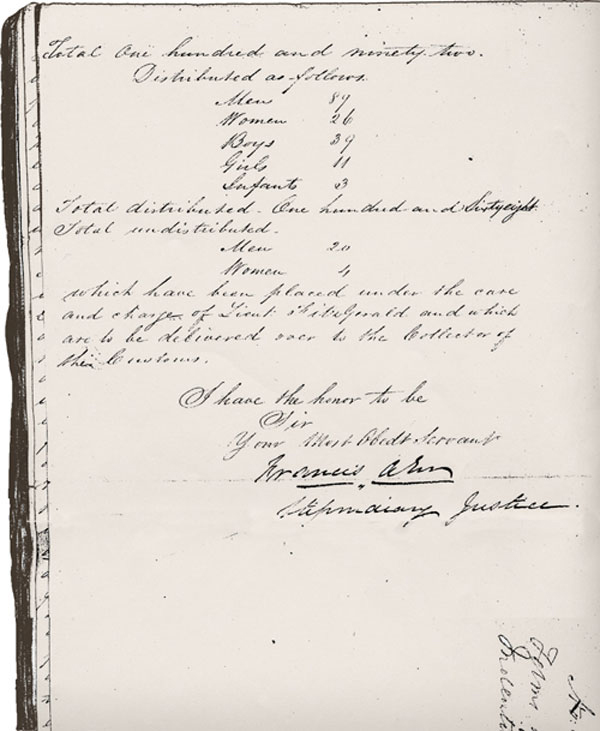 Total One hundred and ninety two.
Distributed as follows
Men 89
Women 26
Boys 39
Girls 11
Infants 3
Total distributed - One hundred and Sixtyeight.
Total undistributed.
Men 20
Women 4
which have been placed under the care
and charge of Lieut FitzGerald and which
are to be delivered over to the Collector of
the Customs.
I have the honor to be
Sir
Your Most Obedt Servant
Francis
Justice.
No.
Terms
Indentu